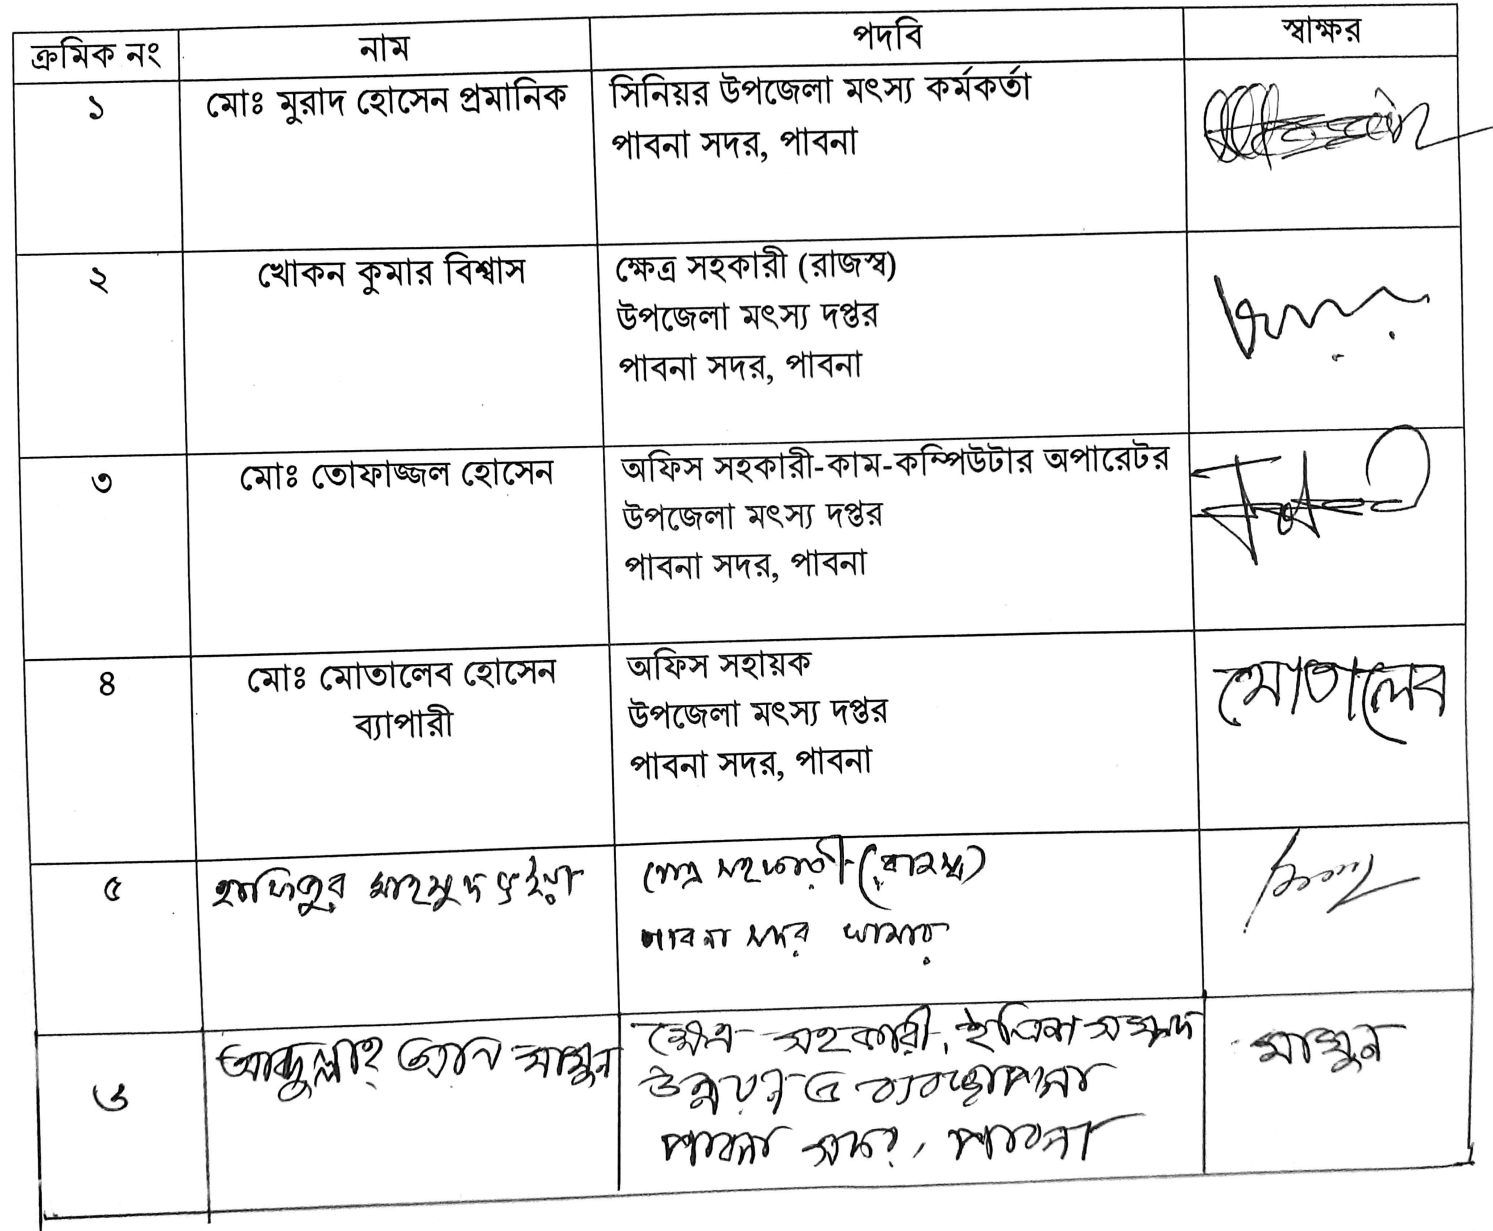 ক্রমিক নং নাম পদবি স্বাক্ষর
১ মোঃ মুরাদ হোসেন প্রমানিক সিনিয়র উপজেলা মৎস্য কর্মকর্তা
পাবনা সদর, পাবনা
২ খোকন কুমার বিশ্বাস ক্ষেত্র সহকারী (রাজস্ব)
উপজেলা মৎস্য দপ্তর
পাবনা সদর, পাবনা
৩ মোঃ তোফাজ্জল হোসেন অফিস সহকারী-কাম-কম্পিউটার অপারেটর
উপজেলা মৎস্য দপ্তর
পাবনা সদর, পাবনা
৪ মোঃ মোতালেব হোসেন অফিস সহায়ক মোতালেব
ব্যাপারী উপজেলা মৎস্য দপ্তর
পাবনা সদর, পাবনা
৫ মাহমুদ ক্ষেত্র সহকারী (রাজস্ব)
পাবনা সদর
৬ আব্দুল্লাহ্ আল মামুন ক্ষেত্র সহকারী, ইলিশ সম্পদ মামুন
উন্নয়ন ও ব্যবস্থাপনা
পাবনা সদর, পাবনা